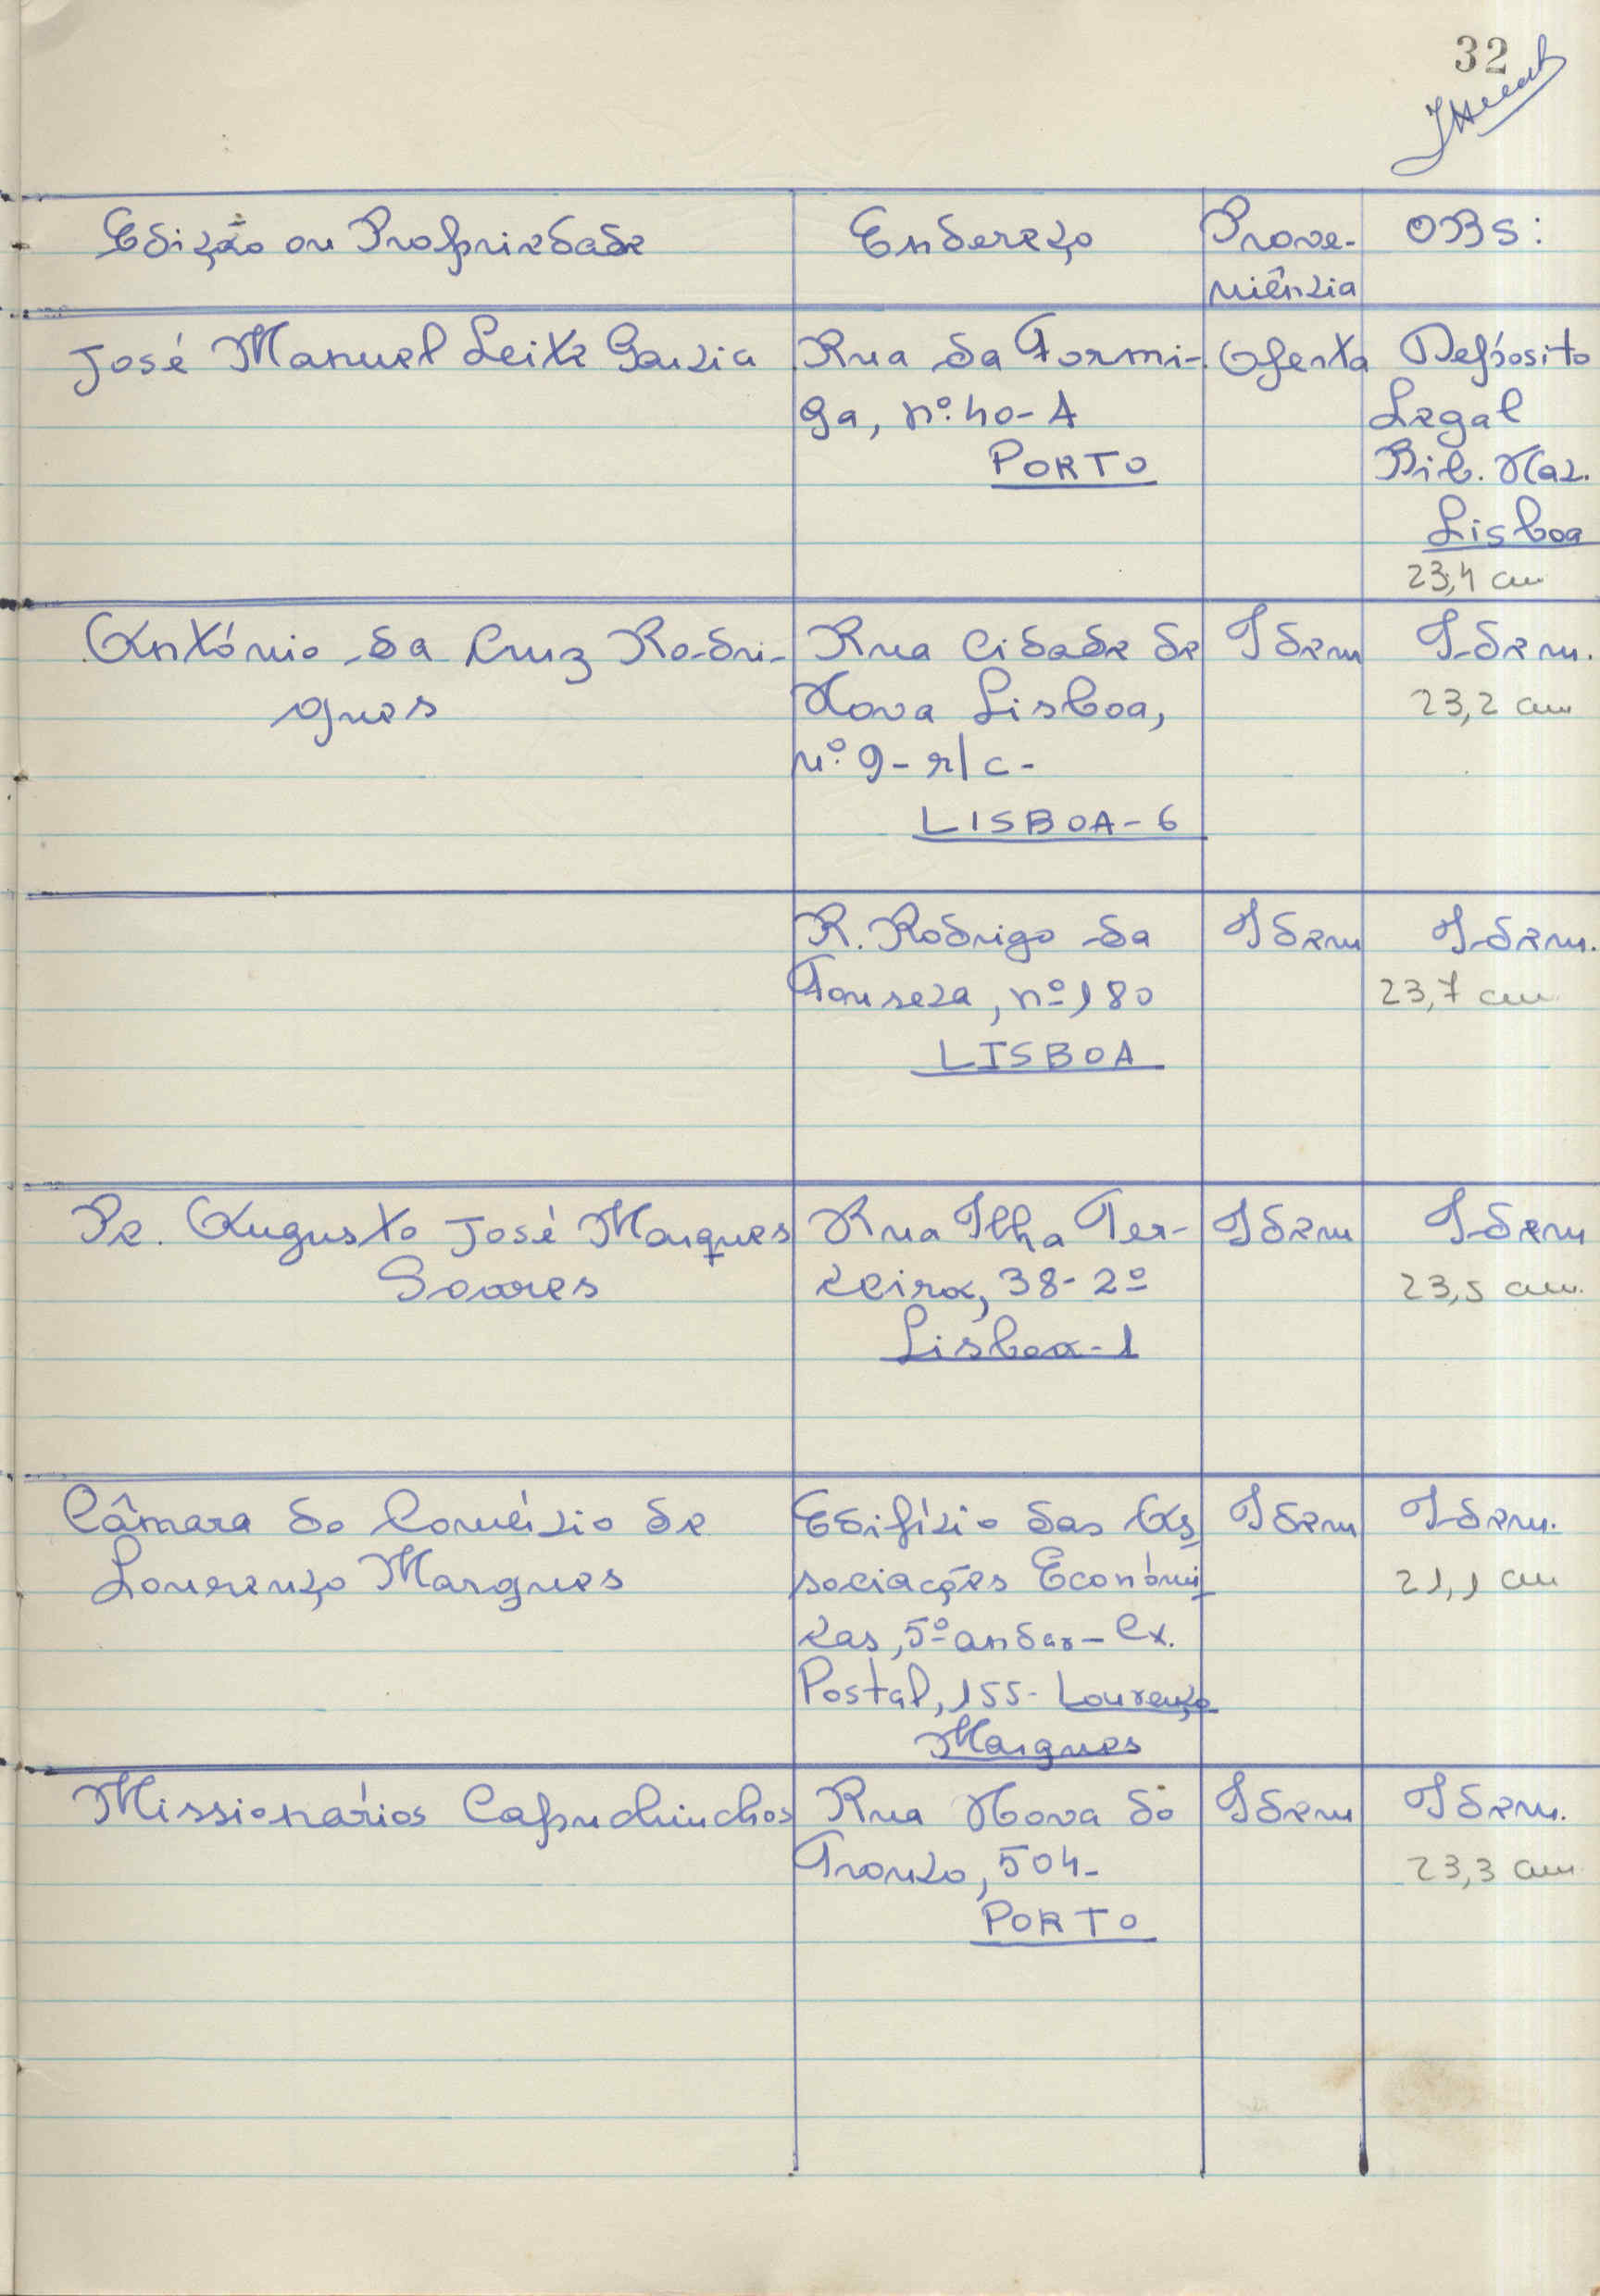 32
Edição ou Propriedade
Endereço
Prove-
niência
OBS:
José Manuel Leite Garcia
Rua da Formi-
ga, nº. 40-A
PORTO
Oferta
Depósito
Legal
Bib. Nac.
Lisboa
23,4 cm
António da Cruz Rodri-
gues
Rua Cidade de
Nova Lisboa,
nº. 9- r/c-
LISBOA-6
Idem
Idem.
23,2 cm
R. Rodrigo da
Fonseca, nº 180
LISBOA
Idem
Idem.
23,7 cm
Pe. Augusto José Marques
Soares
Rua Ilha Ter-
ceira, 38-2º
Lisboa-1
Idem
Idem
23,5 cm.
Câmara do Comércio de
Lourenço Marques
Edifício das As
sociações Económi
cas, 5º andar- Cx.
Postal, 155- Lourenço
Marques
Idem
Idem.
21,1 cm
Missionários Capuchinchos
Rua Nova do
Tronco, 504-
PORTO
Idem
Idem.
23,3 cm